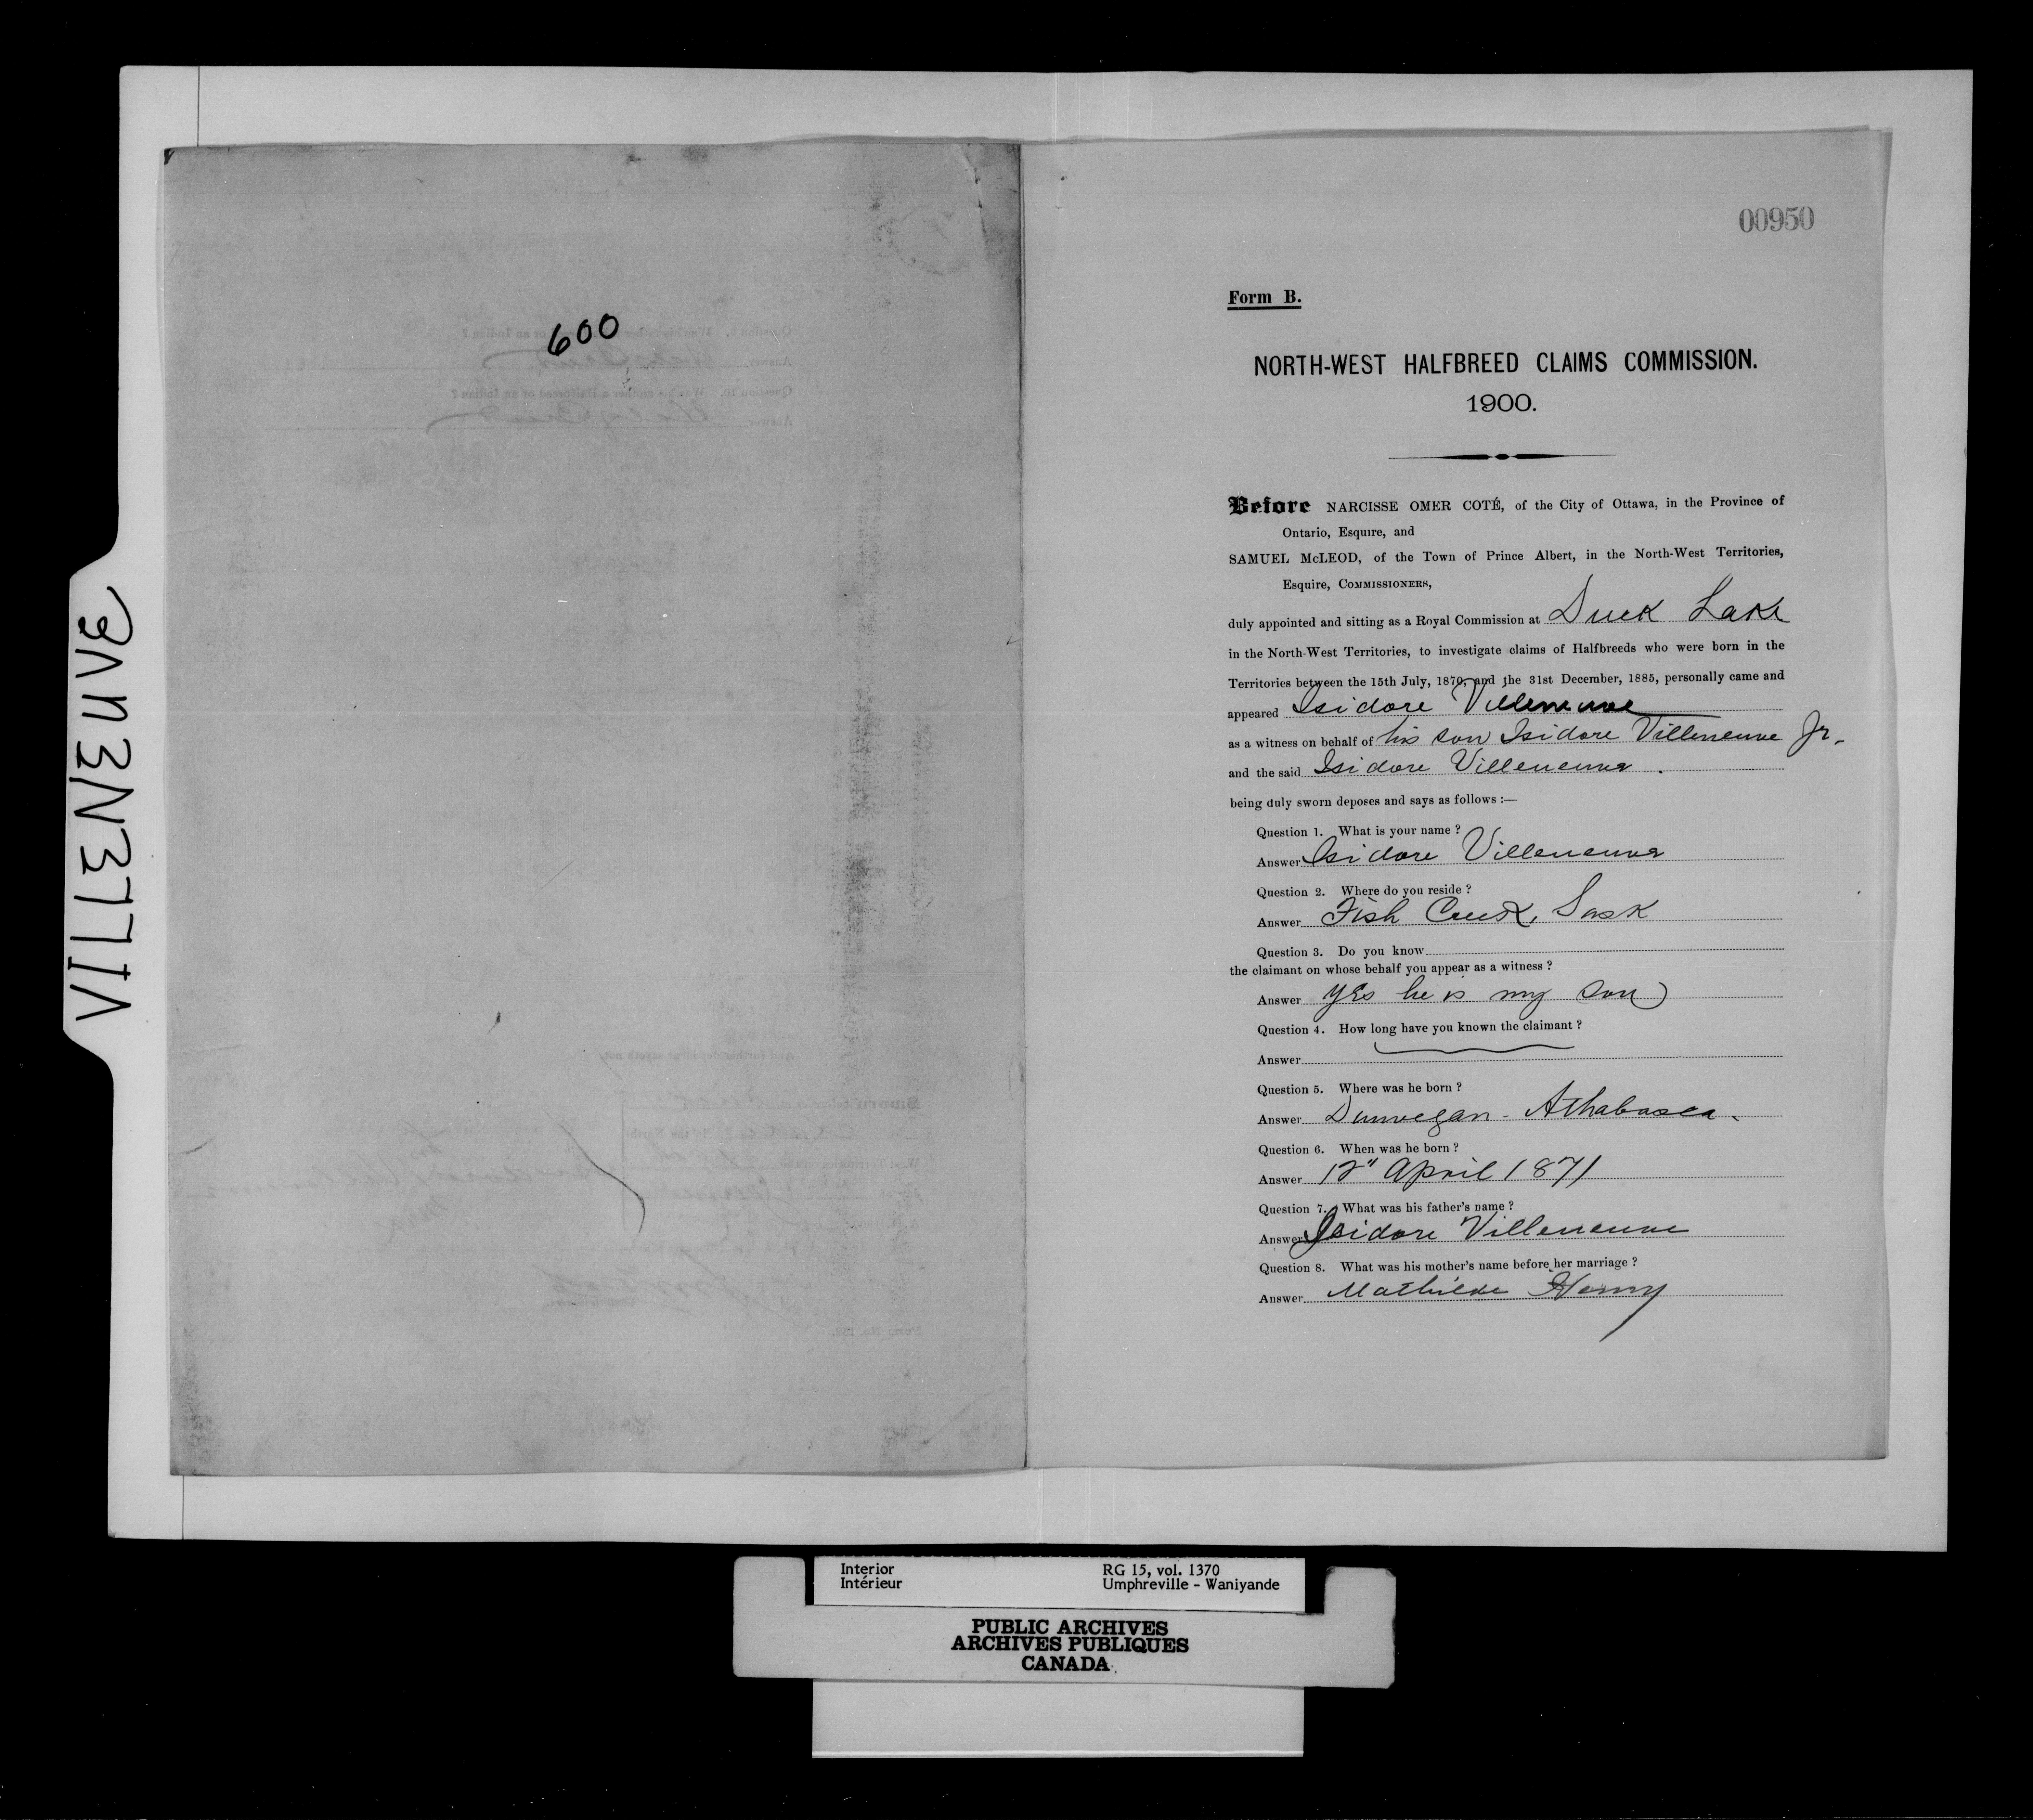 VILLENEUVE
600
00950
Form B.
NORTH-WEST HALFBREED CLAIMS COMMISSION.
1900.
Before NARCISSE OMER COTÉ, of the City of Ottawa, in the Province of
Ontario, Esquire, and
SAMUEL McLEOD, of the Town of Prince Albert, in the North-West Territories,
Esquire, COMMISSIONERS,
duly appointed and sitting as a Royal Commission at Duck Lake
in the North-West Territories, to investigate claims of Halfbreeds who were born in the
Territories between the 15th July, 1870, and the 31st December, 1885, personally came and
appeared Isidore Villeneuve
as a witness on behalf of his son Isidore Villeneuve Jr.
and the said Isidore Villeneuve.
being duly sworn deposes and says as follows :—
Question 1. What is your name ?
Answer Isidore Villeneuve
Question 2. Where do you reside ?
Answer Fish Creek, Sask
Question 3. Do you know
the claimant on whose behalf you appear as a witness ?
Answer yes he is my son
Question 4. How long have you known the claimant ?
Answer
Question 5. Where was he born ?
Answer Dunvegan - Athabasca.
Question 6. When was he born ?
Answer 12" April 1871
Question 7. What was his father's name ?
Answer Isidore Villeneuve
Question 8. What was his mother's name before her marriage ?
Answer Mathilde Henry
Interior RG 15, vol. 1370
Intérieur Umphreville - Waniyande
PUBLIC ARCHIVES
ARCHIVES PUBLIQUES
CANADA